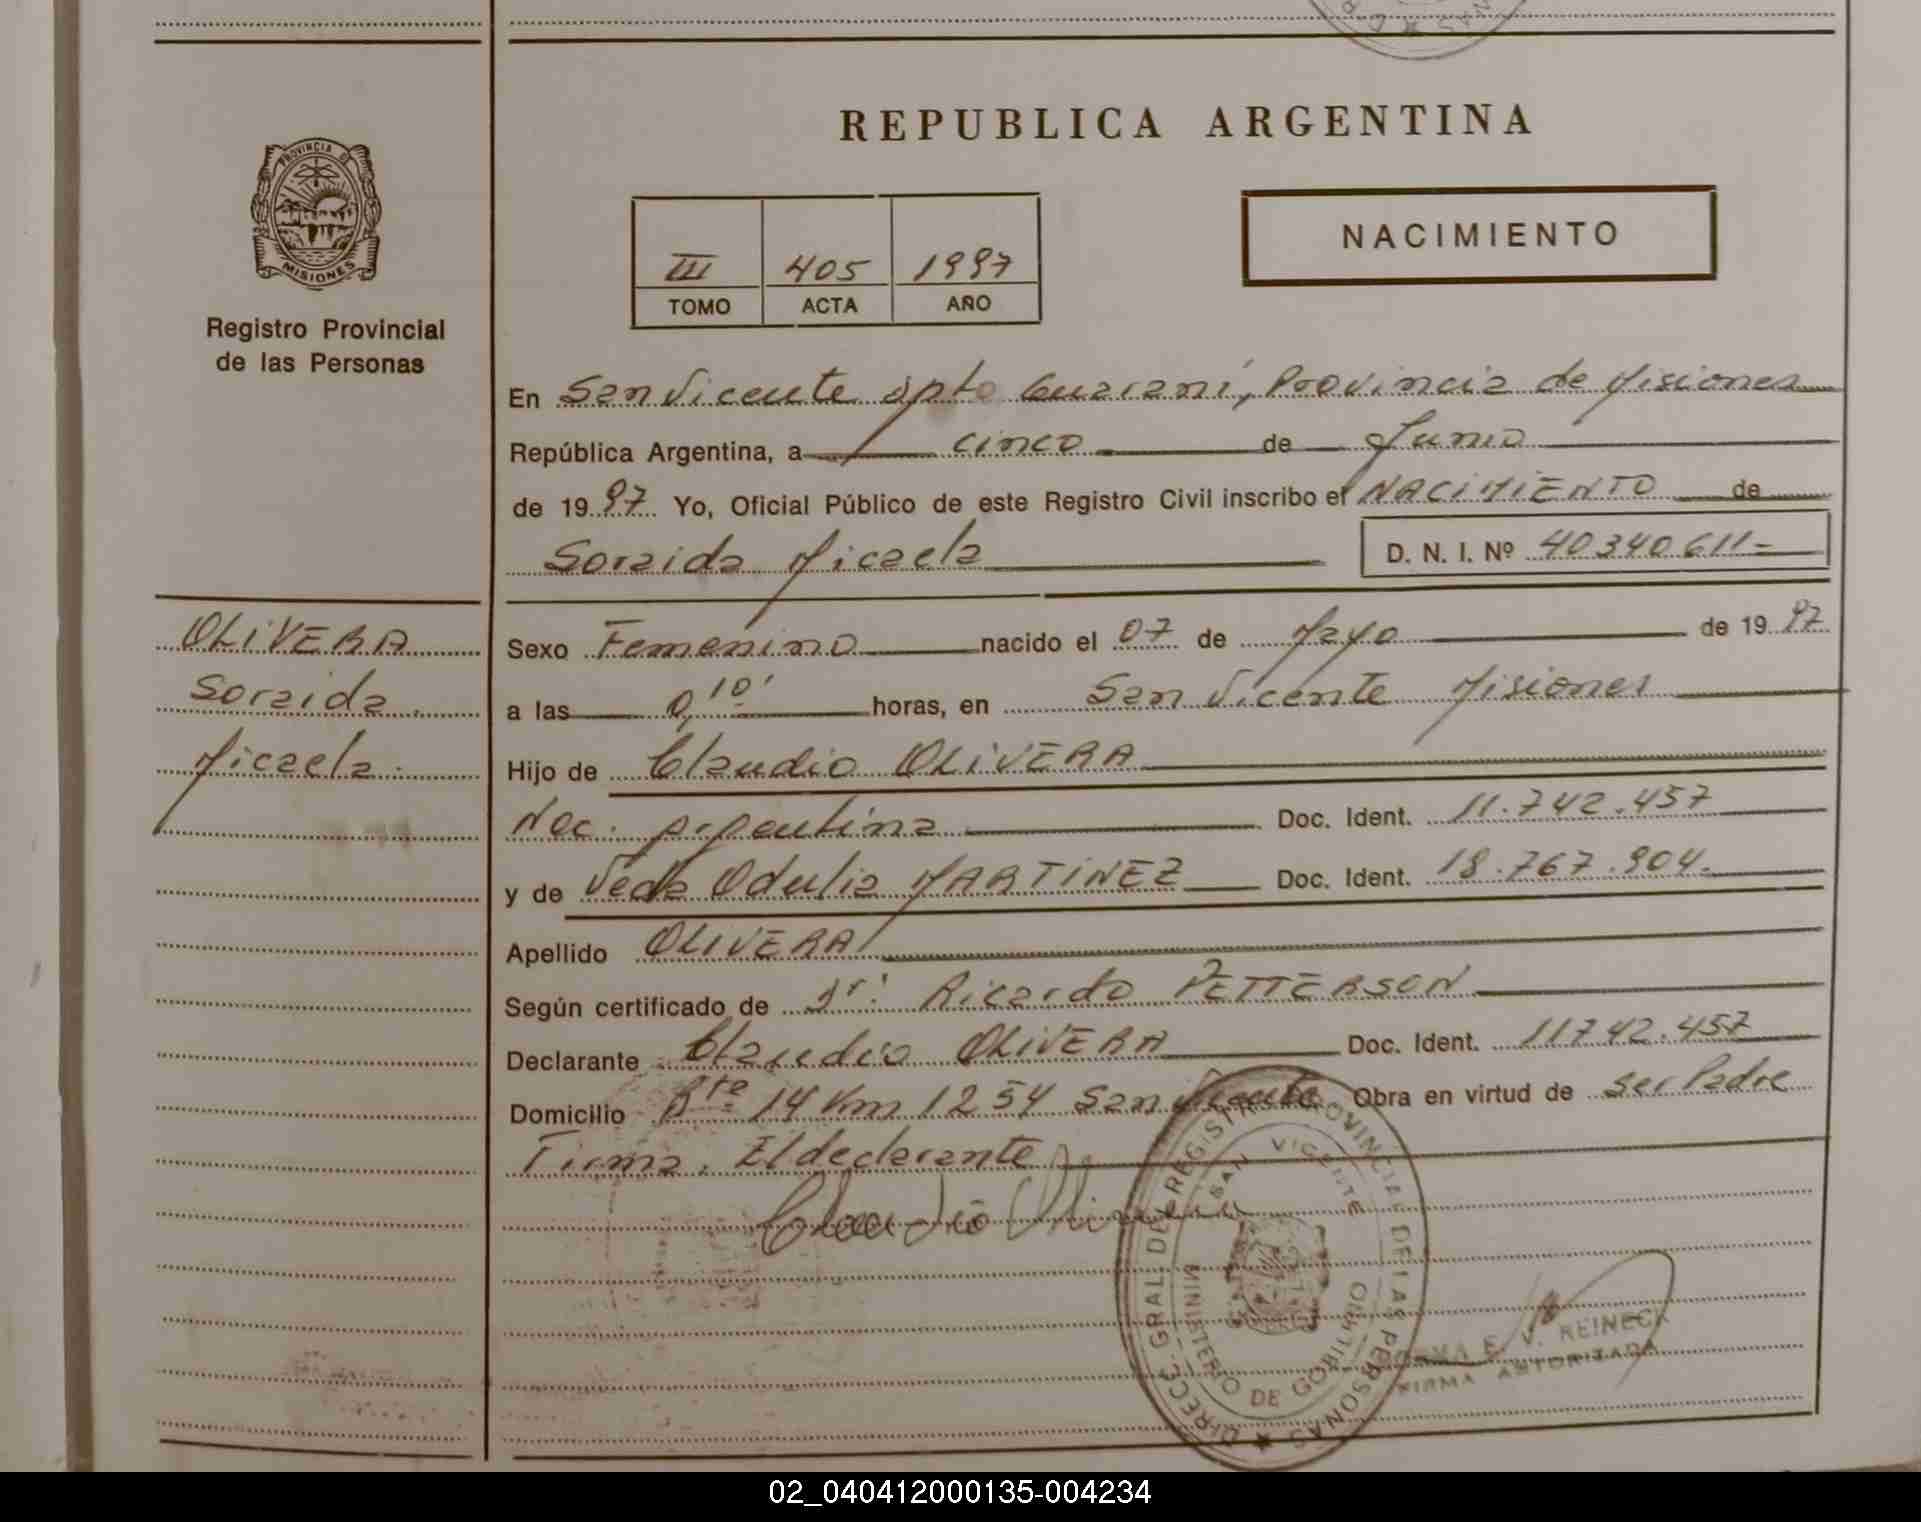 REPUBLICA ARGENTINA
PROVINCIA DE
MISIONES
Registro Provincial
de las Personas
III 405 1997
TOMO ACTA AÑO
NACIMIENTO
En San Vicente Dpto Guaraní, Provincia de Misiones
República Argentina, a cinco de Junio
de 1997 Yo, Oficial Público de este Registro Civil inscribo el NACIMIENTO de
Soraida Micaela D. N. I. Nº 40340611-
OLIVERA
Soraida
Micaela.
Sexo Femenino nacido el 07 de Mayo de 1997
a las 0,10' horas, en San Vicente Misiones
Hijo de Claudio OLIVERA
Nac. Argentina Doc. Ident. 11.742.457
y de Veda Odulia MARTINEZ Doc. Ident. 18.767.904.
Apellido OLIVERA
Según certificado de Dr: Ricardo PETTERSON
Declarante Claudio OLIVERA Doc. Ident. 11742.457
Domicilio Rta 14 Km 1254 San Vicente Obra en virtud de ser Padre
Firma. El declarante
Claudio Oli
DIRECC. GRAL. DEL REGISTRO PROVINCIAL DE LAS PERSONAS
SAN VICENTE
MINISTERIO DE GOBIERNO
E. V. REINECK
FIRMA AUTORIZADA
02_040412000135-004234